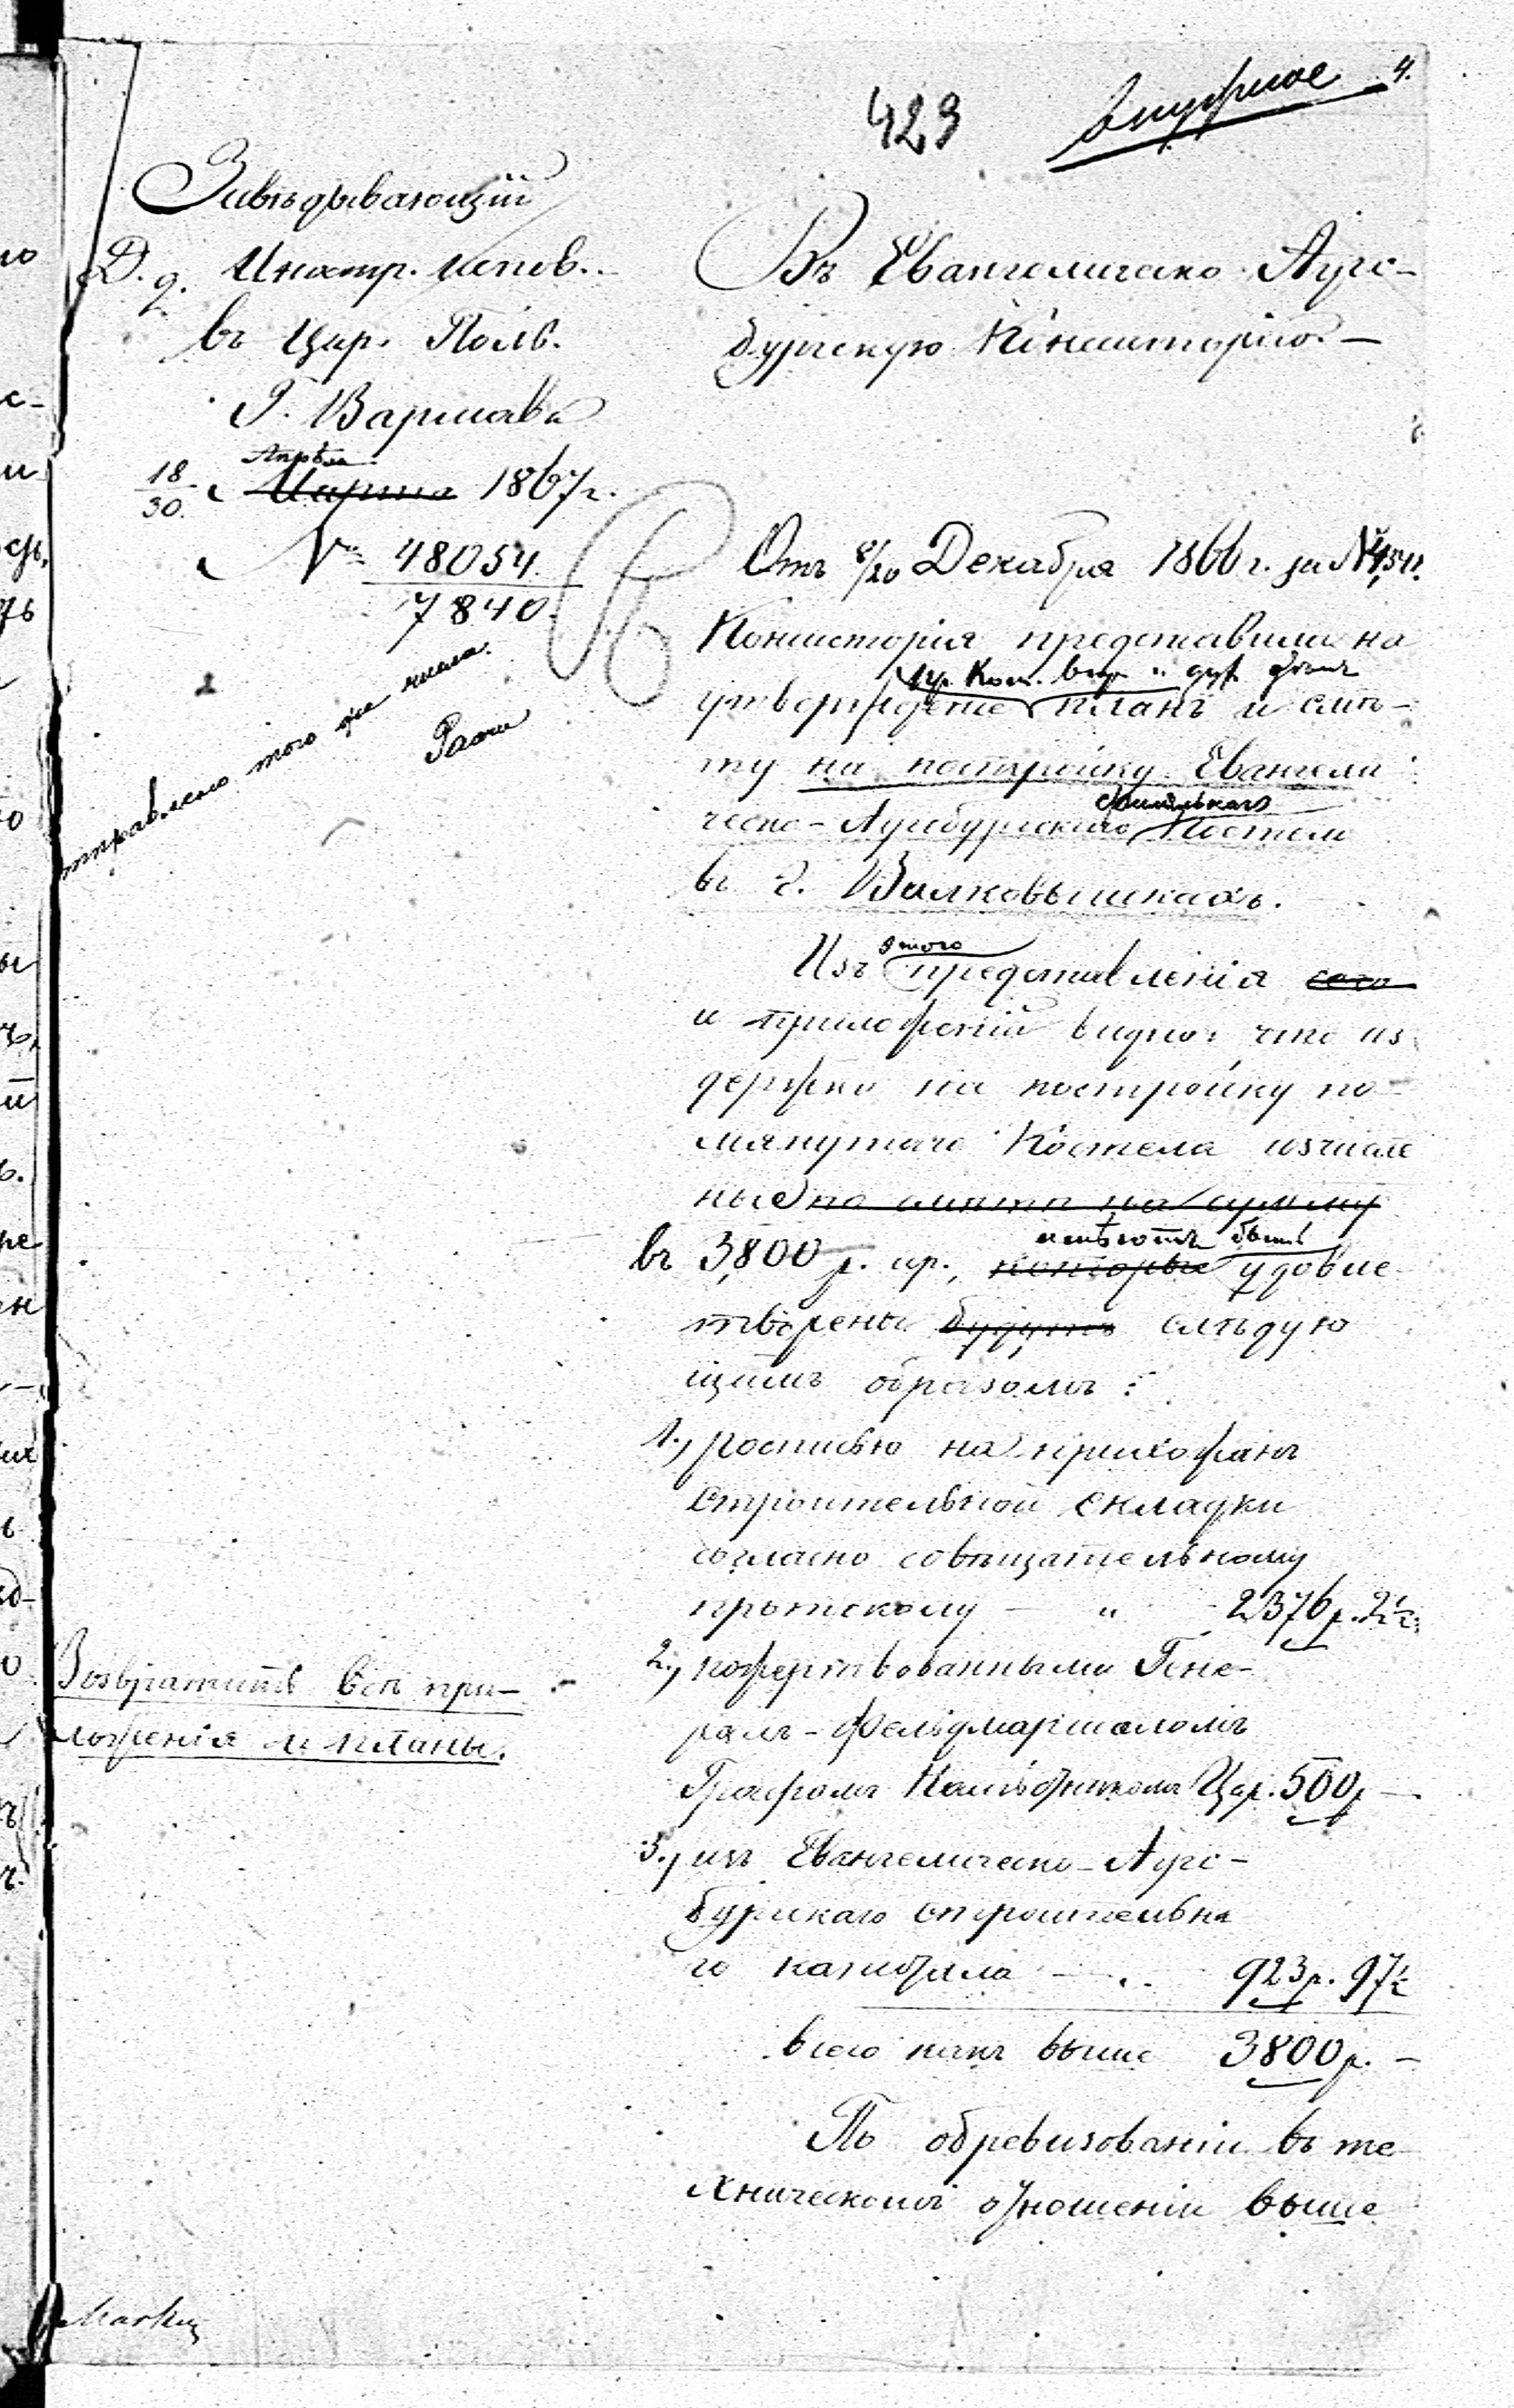 4.
423
Завѣдывающій
Д. д. Иностр. испов.
въ Цар. Польс.
Г. Варшава
18/30 Апрѣля
Марта 1867 г.
№ 48054
7840
того же числа.
Въ Евангелическо Аугс-
бургскую Консисторію.—
Отъ 8/20 Декабря 1866 г. за №
Консисторія представила на
Пр. Ком. вн. и дух. дѣлъ
утвержденіе планъ и смѣ-
ту на постройку Евангели
ческо-Аугсбургскаго Костела
въ г. Волковышкахъ.
этого
Изъ представленія сего
и приложеній видно: что из
держки на постройку по-
мянутаго Костела изчисле
ные по смѣтѣ на сумму
имѣютъ быть
въ 3,800 р. ср., которые удовле
творены будутъ слѣдую
щимъ образомъ:
1., росписью на прихожанъ
строительной складки
согласно совѣщательному
протоколу — " 2376 р. 2½
2., пожертвованными Гене-
ралъ-Фельдмаршаломъ
Графомъ Намѣстникомъ Цар. 500 р —
3., изъ Евангелическо-Аугс-
бургскаго строительна
го капитала — 923 р. 97½
всего какъ выше 3800 р. —
По обревизованіи въ те
хническомъ отношеніи выше
Возвратить всѣ при-
ложенія и планы.